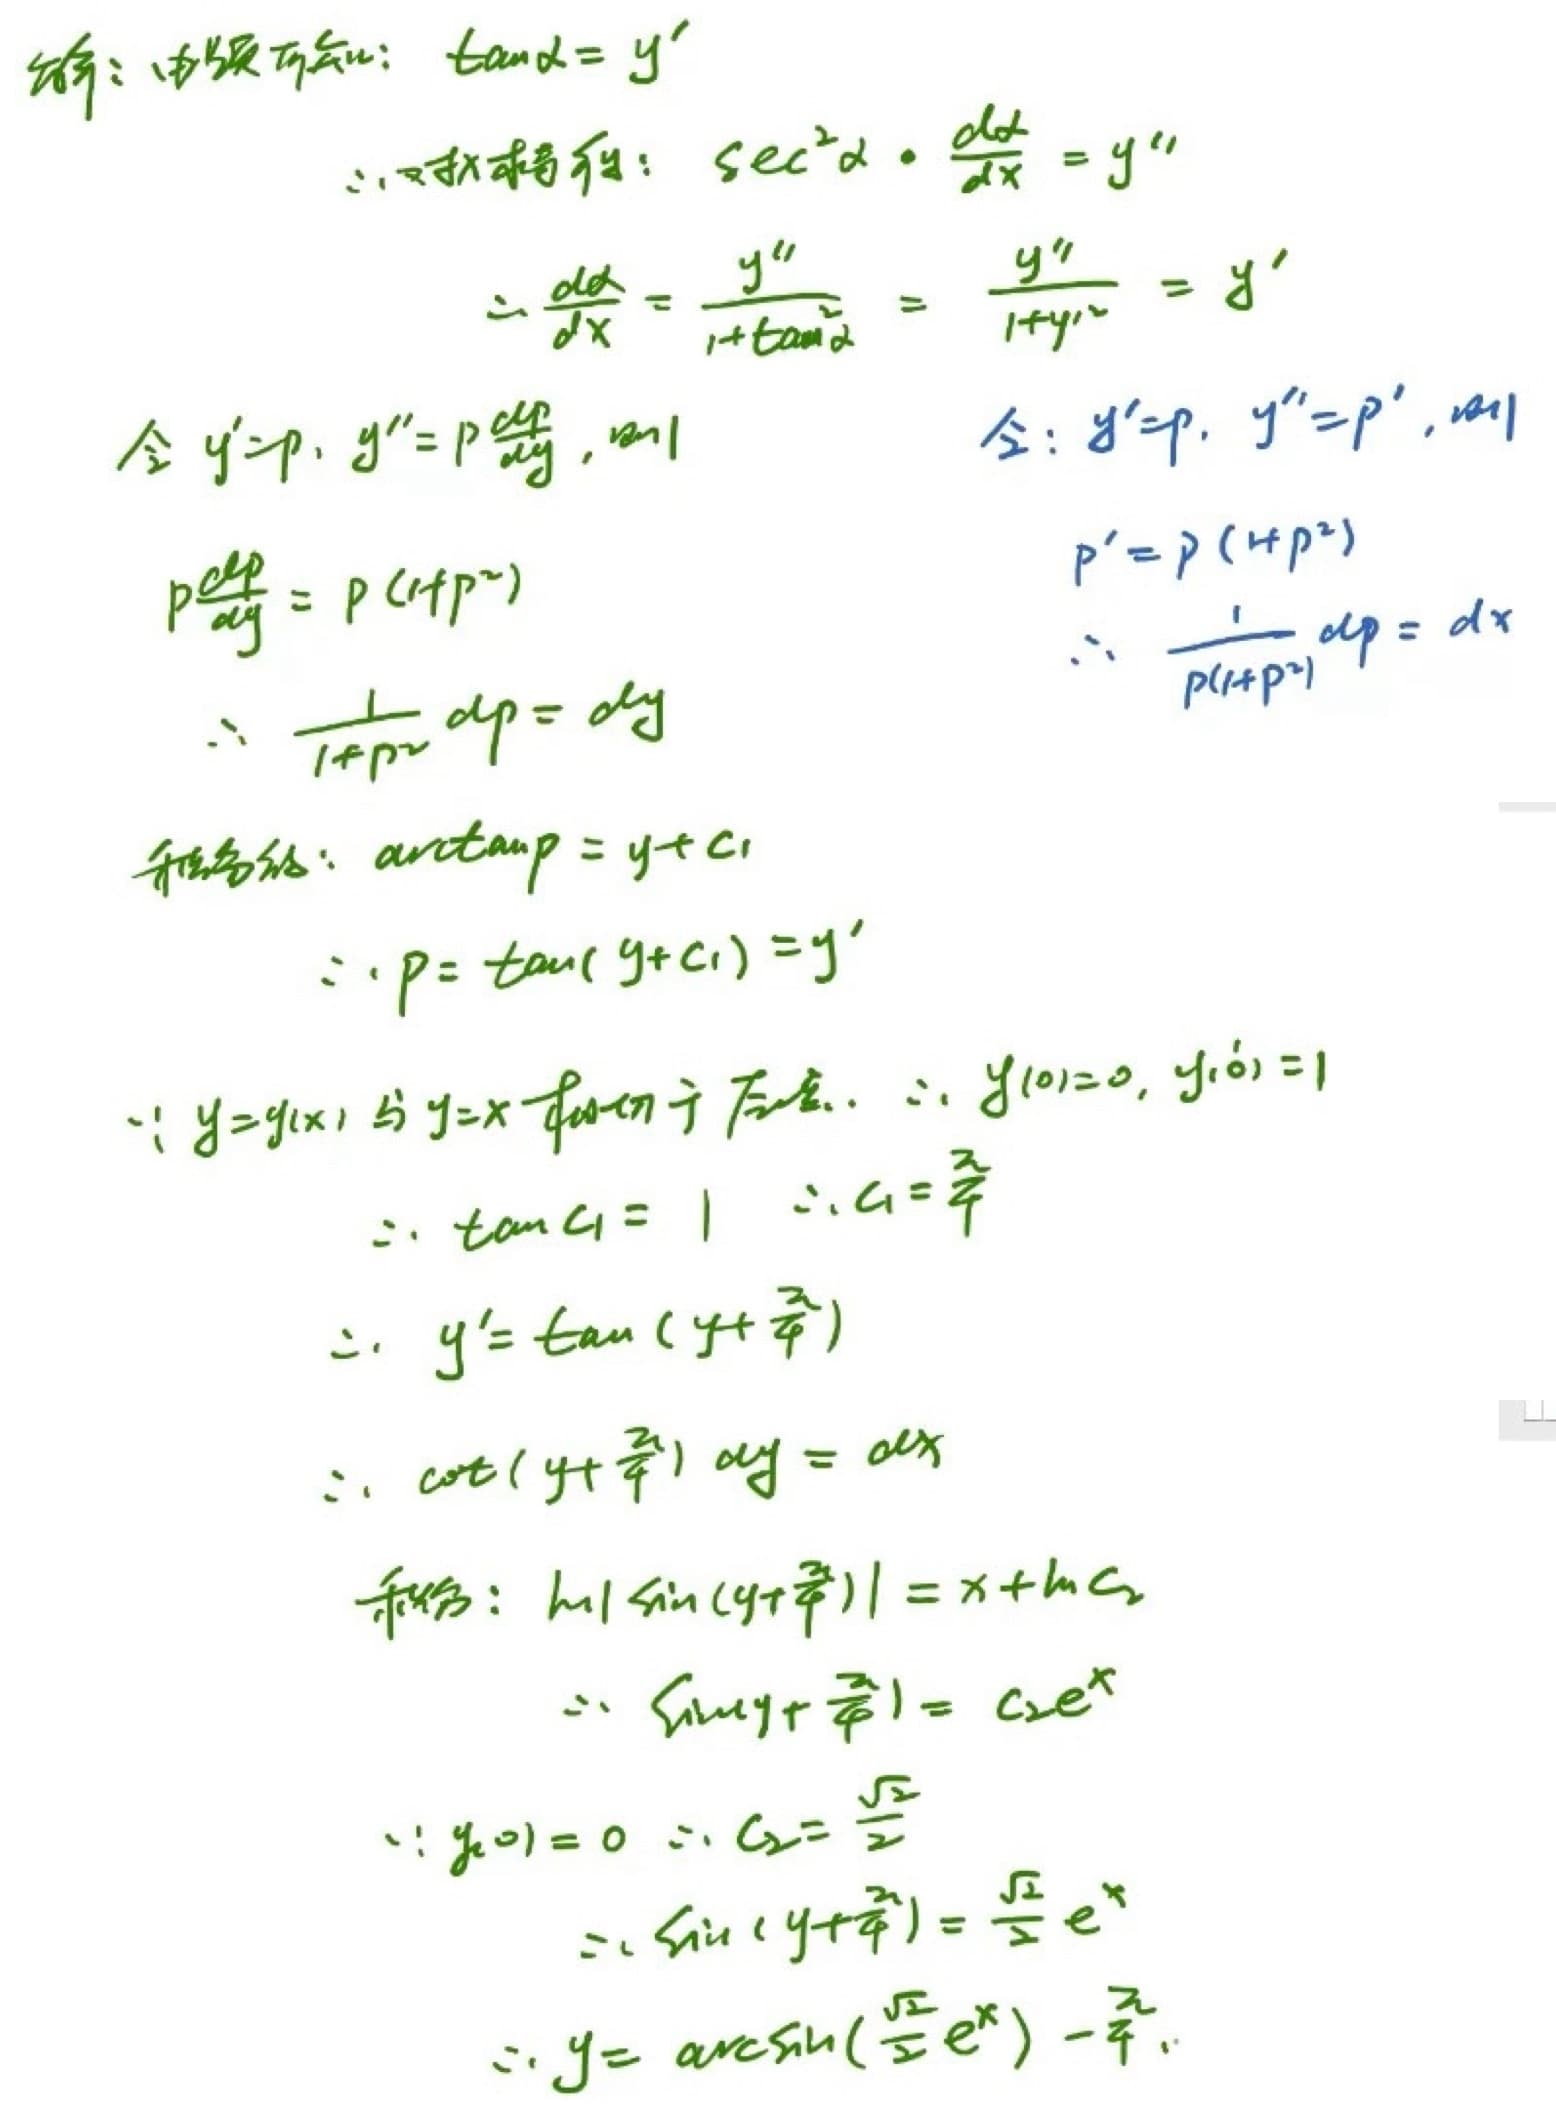 解：由题可知： tanα = y′
∴ 对x求导有： sec²α · dα/dx = y″
∴ dα/dx = y″/(1+tan²α) = y″/(1+y′²) = y′
令 y′=p, y″=p dp/dy, 则
p dp/dy = p(1+p²)
∴ 1/(1+p²) dp = dy
令: y′=p, y″=p′, 则
p′ = p(1+p²)
∴ 1/(p(1+p²)) dp = dx
积分得: arctanp = y+C₁
∴ p = tan(y+C₁) = y′
∵ y=y(x) 与 y=x 相切于原点. ∴ y(0)=0, y′(0)=1
∴ tanC₁ = 1 ∴ C₁ = π/4
∴ y′ = tan(y+π/4)
∴ cot(y+π/4) dy = dx
积分: ln|sin(y+π/4)| = x+lnC₂
∴ sin(y+π/4) = C₂eˣ
∵ y(0)=0 ∴ C₂ = √2/2
∴ sin(y+π/4) = √2/2 eˣ
∴ y = arcsin(√2/2 eˣ) - π/4.